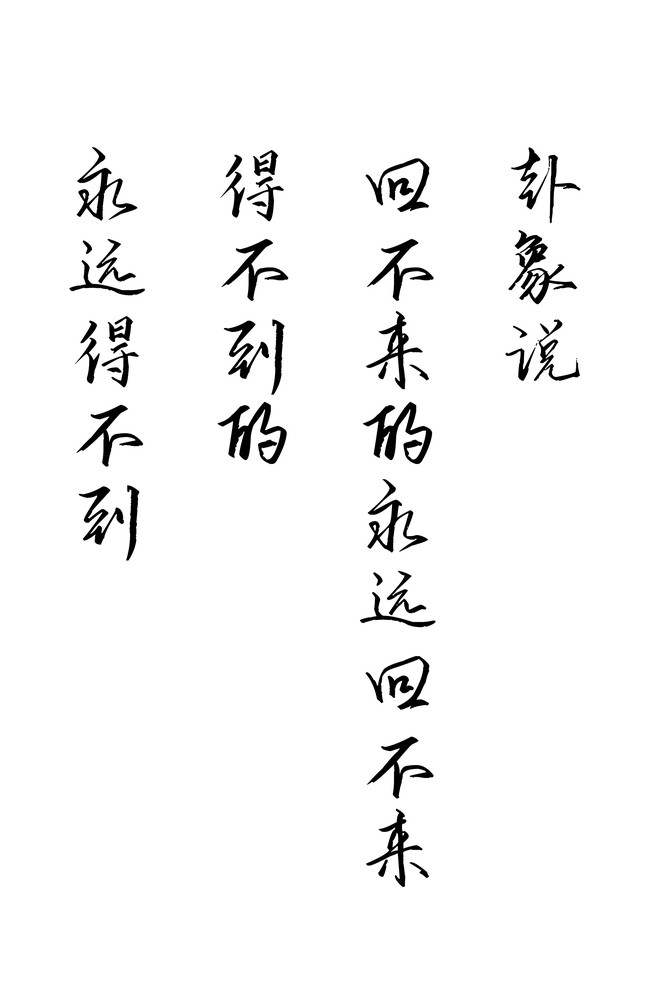 卦象说
回不来的永远回不来
得不到的
永远得不到